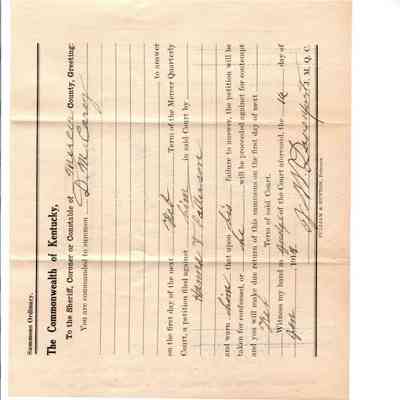 Summons Ordinary.
The Commonwealth of Kentucky,
To the Sheriff, Coroner or Constable of Mercer County, Greeting:
You are commanded to summon D. M. Carey
to answer
on the first day of the next Feb Term of the Mercer Quarterly
Court, a petition filed against him in said Court by
Hanna & Patterson
and warn him that upon his failure to answer, the petition will be
taken for confessed, or he will be proceeded against for contempt
and you will make due return of this summons on the first day of next
Feb Term of said Court.
Witness my hand as Judge of the Court aforesaid, the 12 day of
Jan 191
J. W. Davenport J. M. Q. C.
PRINTERS